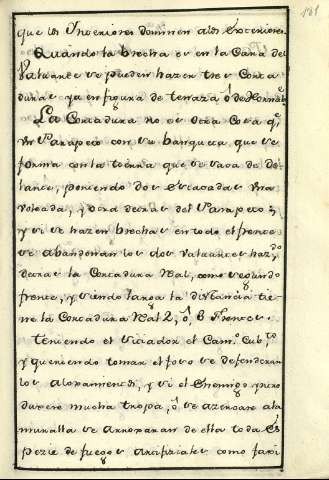 181
que los Ynteriores dominen a los Exteriores
Quando la brecha es en la Cara del
Valuarte se pueden hazer tres Corta
duras ya en figura de terraza ô de Hornab.
La Cortadura no es otra Cosa q.
un Parapeto con su banqueta que se
forma con la tierra que se saca de de
lante, poniendo dos Estacadas una
y otra detras del Parapeto
y si se hazen brechas en todo el frente
se abandonan los dos Valuartes haz.do
detras la Cortadura Real, como segundo
frente, y siendo larga la distancia tie
ne la Cortadura Real 2, ô 3 Frentes.
Teniendo el Sitiador el Cam.o Cub.to
y queriendo tomar el foso se defenderan
los aloxamientos, y si el Enemigo
duxere mucha tropa, ô se azercare a la
muralla se arroxaran de ella toda Es
pezie de fuegos artifiziales como faxi